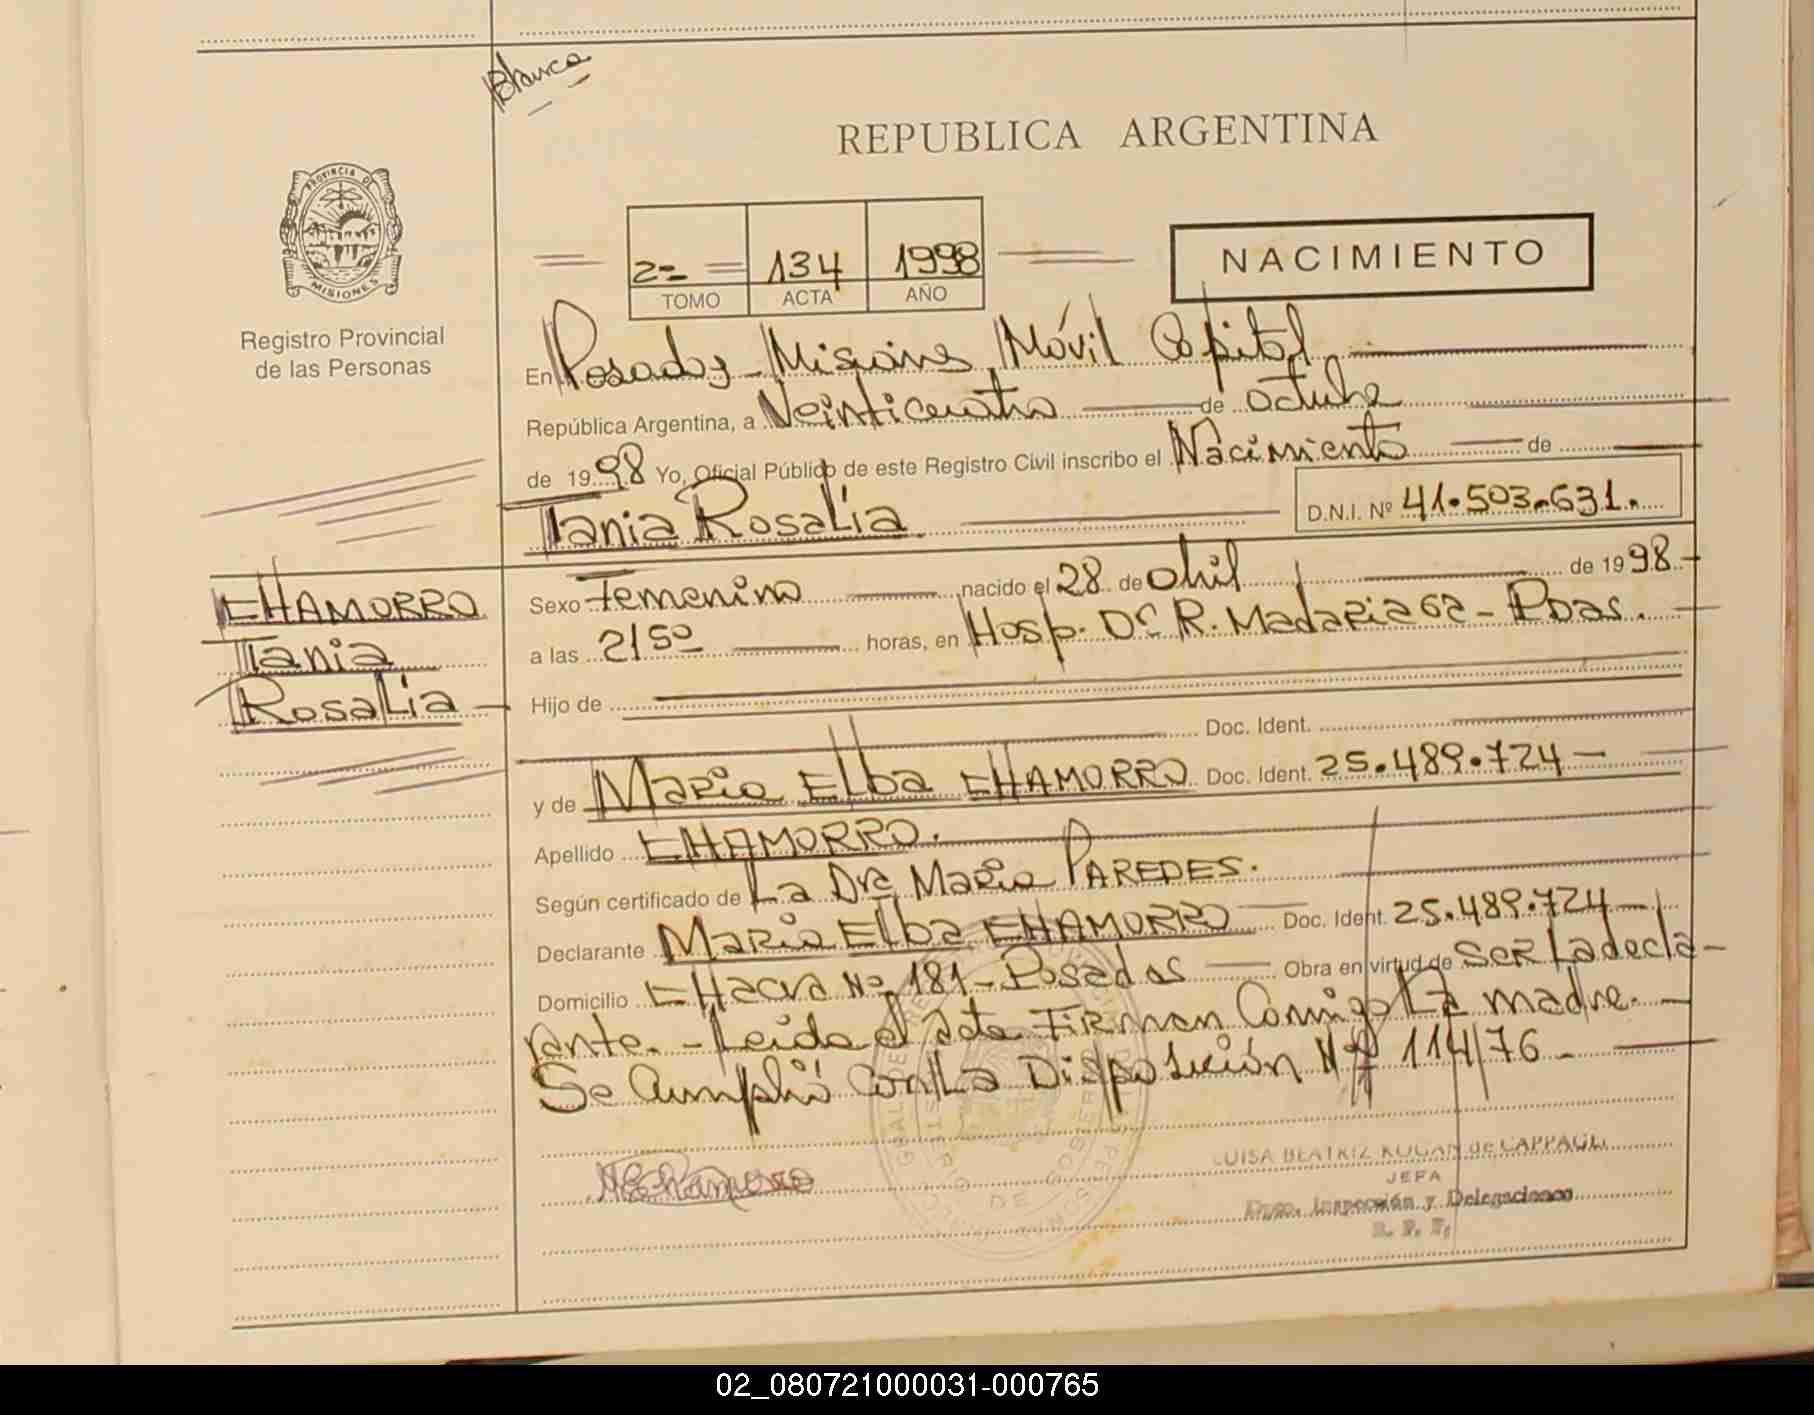 Blanca
REPUBLICA ARGENTINA
PROVINCIA DE
MISIONES
Registro Provincial
de las Personas
2= = 134 1998
TOMO ACTA AÑO
NACIMIENTO
En Posadas - Misiones, Móvil Capital,
República Argentina, a Veinticuatro de octubre
de 1998 Yo, Oficial Público de este Registro Civil inscribo el Nacimiento de
Tania Rosalia. D.N.I. Nº 41.503.631.
CHAMORRO
Tania
Rosalia -
Sexo Femenino nacido el 28 de abril de 1998-
a las 21 50 horas, en Hosp. Dr R. Madariaga - Pdas.
Hijo de
Doc. Ident.
y de Maria Elba CHAMORRO Doc. Ident. 25.489.724 -
Apellido CHAMORRO.
Según certificado de La Dra Maria PAREDES.
Declarante Maria Elba CHAMORRO Doc. Ident. 25.489.724 -
Domicilio CHacra Nº 181 - Posadas Obra en virtud de Ser La decla-
rante. - Leida el acta Firman Conmigo La madre. -
Se Cumplió Con La Disposición Nº 114/76 -
MEChamorro
LUISA BEATRIZ KOGAN de CAPPAGLI
JEFA
Dpto. Inspección y Delegaciones
R. P. P.
02_080721000031-000765